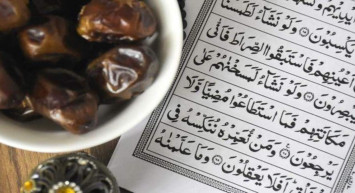 يَكْسِبُوْنَ ۝ وَلَوْ نَشَآءُ لَطَمَسْنَا
اَعْيُنِهِمْ فَاسْتَبَقُوا الصِّرَاطَ فَاَنّٰى
يُبْصِرُوْنَ ۝ وَلَوْ نَشَآءُ لَمَسَخْنٰهُمْ عَلٰى
مَكَانَتِهِمْ فَمَا اسْتَطَاعُوْا مُضِيًّا وَّلَا
يَرْجِعُوْنَ ۝ وَمَنْ نُّعَمِّرْهُ نُنَكِّسْهُ فِى
اَفَلَا يَعْقِلُوْنَ ۝ وَمَا عَلَّمْنٰهُ